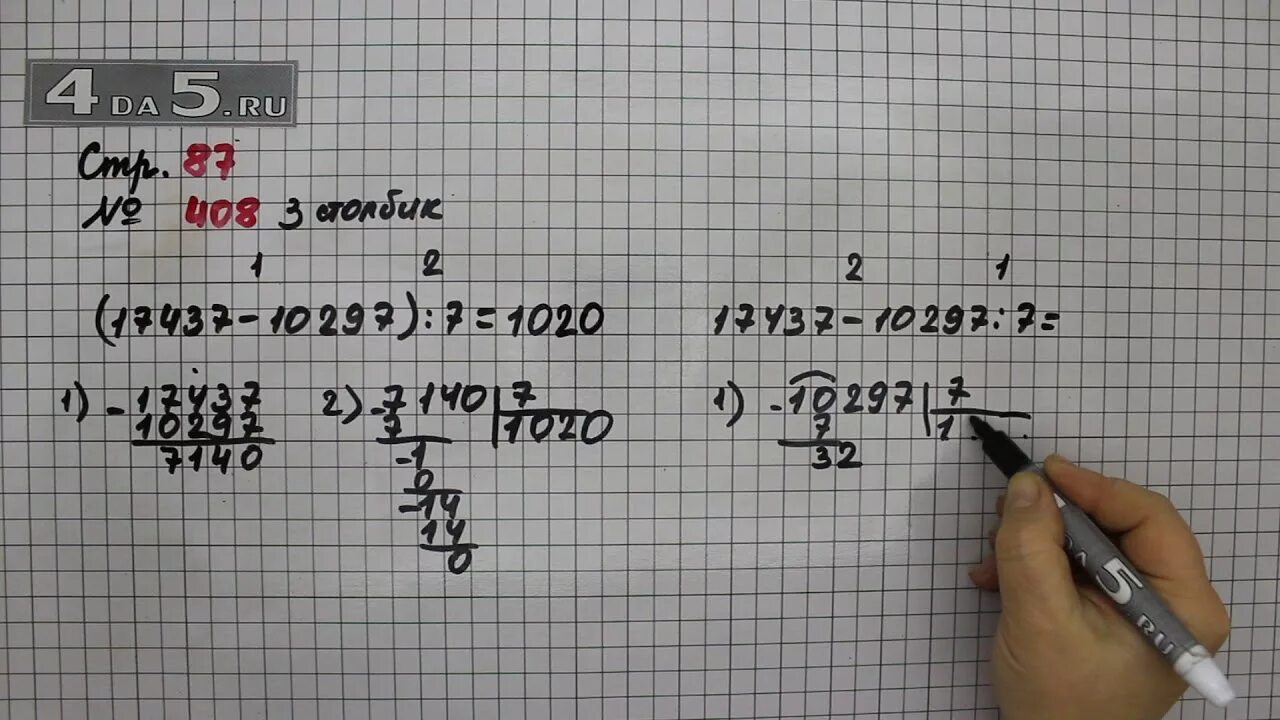 4 DA 5.RU
Стр. 87
№ 408 3 столбик
1 2
(17437-10297):7=1020
1) -17437
10297
7140
2) -7140 7
7 1020
-1
0
-14
14
0
2 1
17437-10297:7=
1) -10297 7
7 1...
32
5 RU